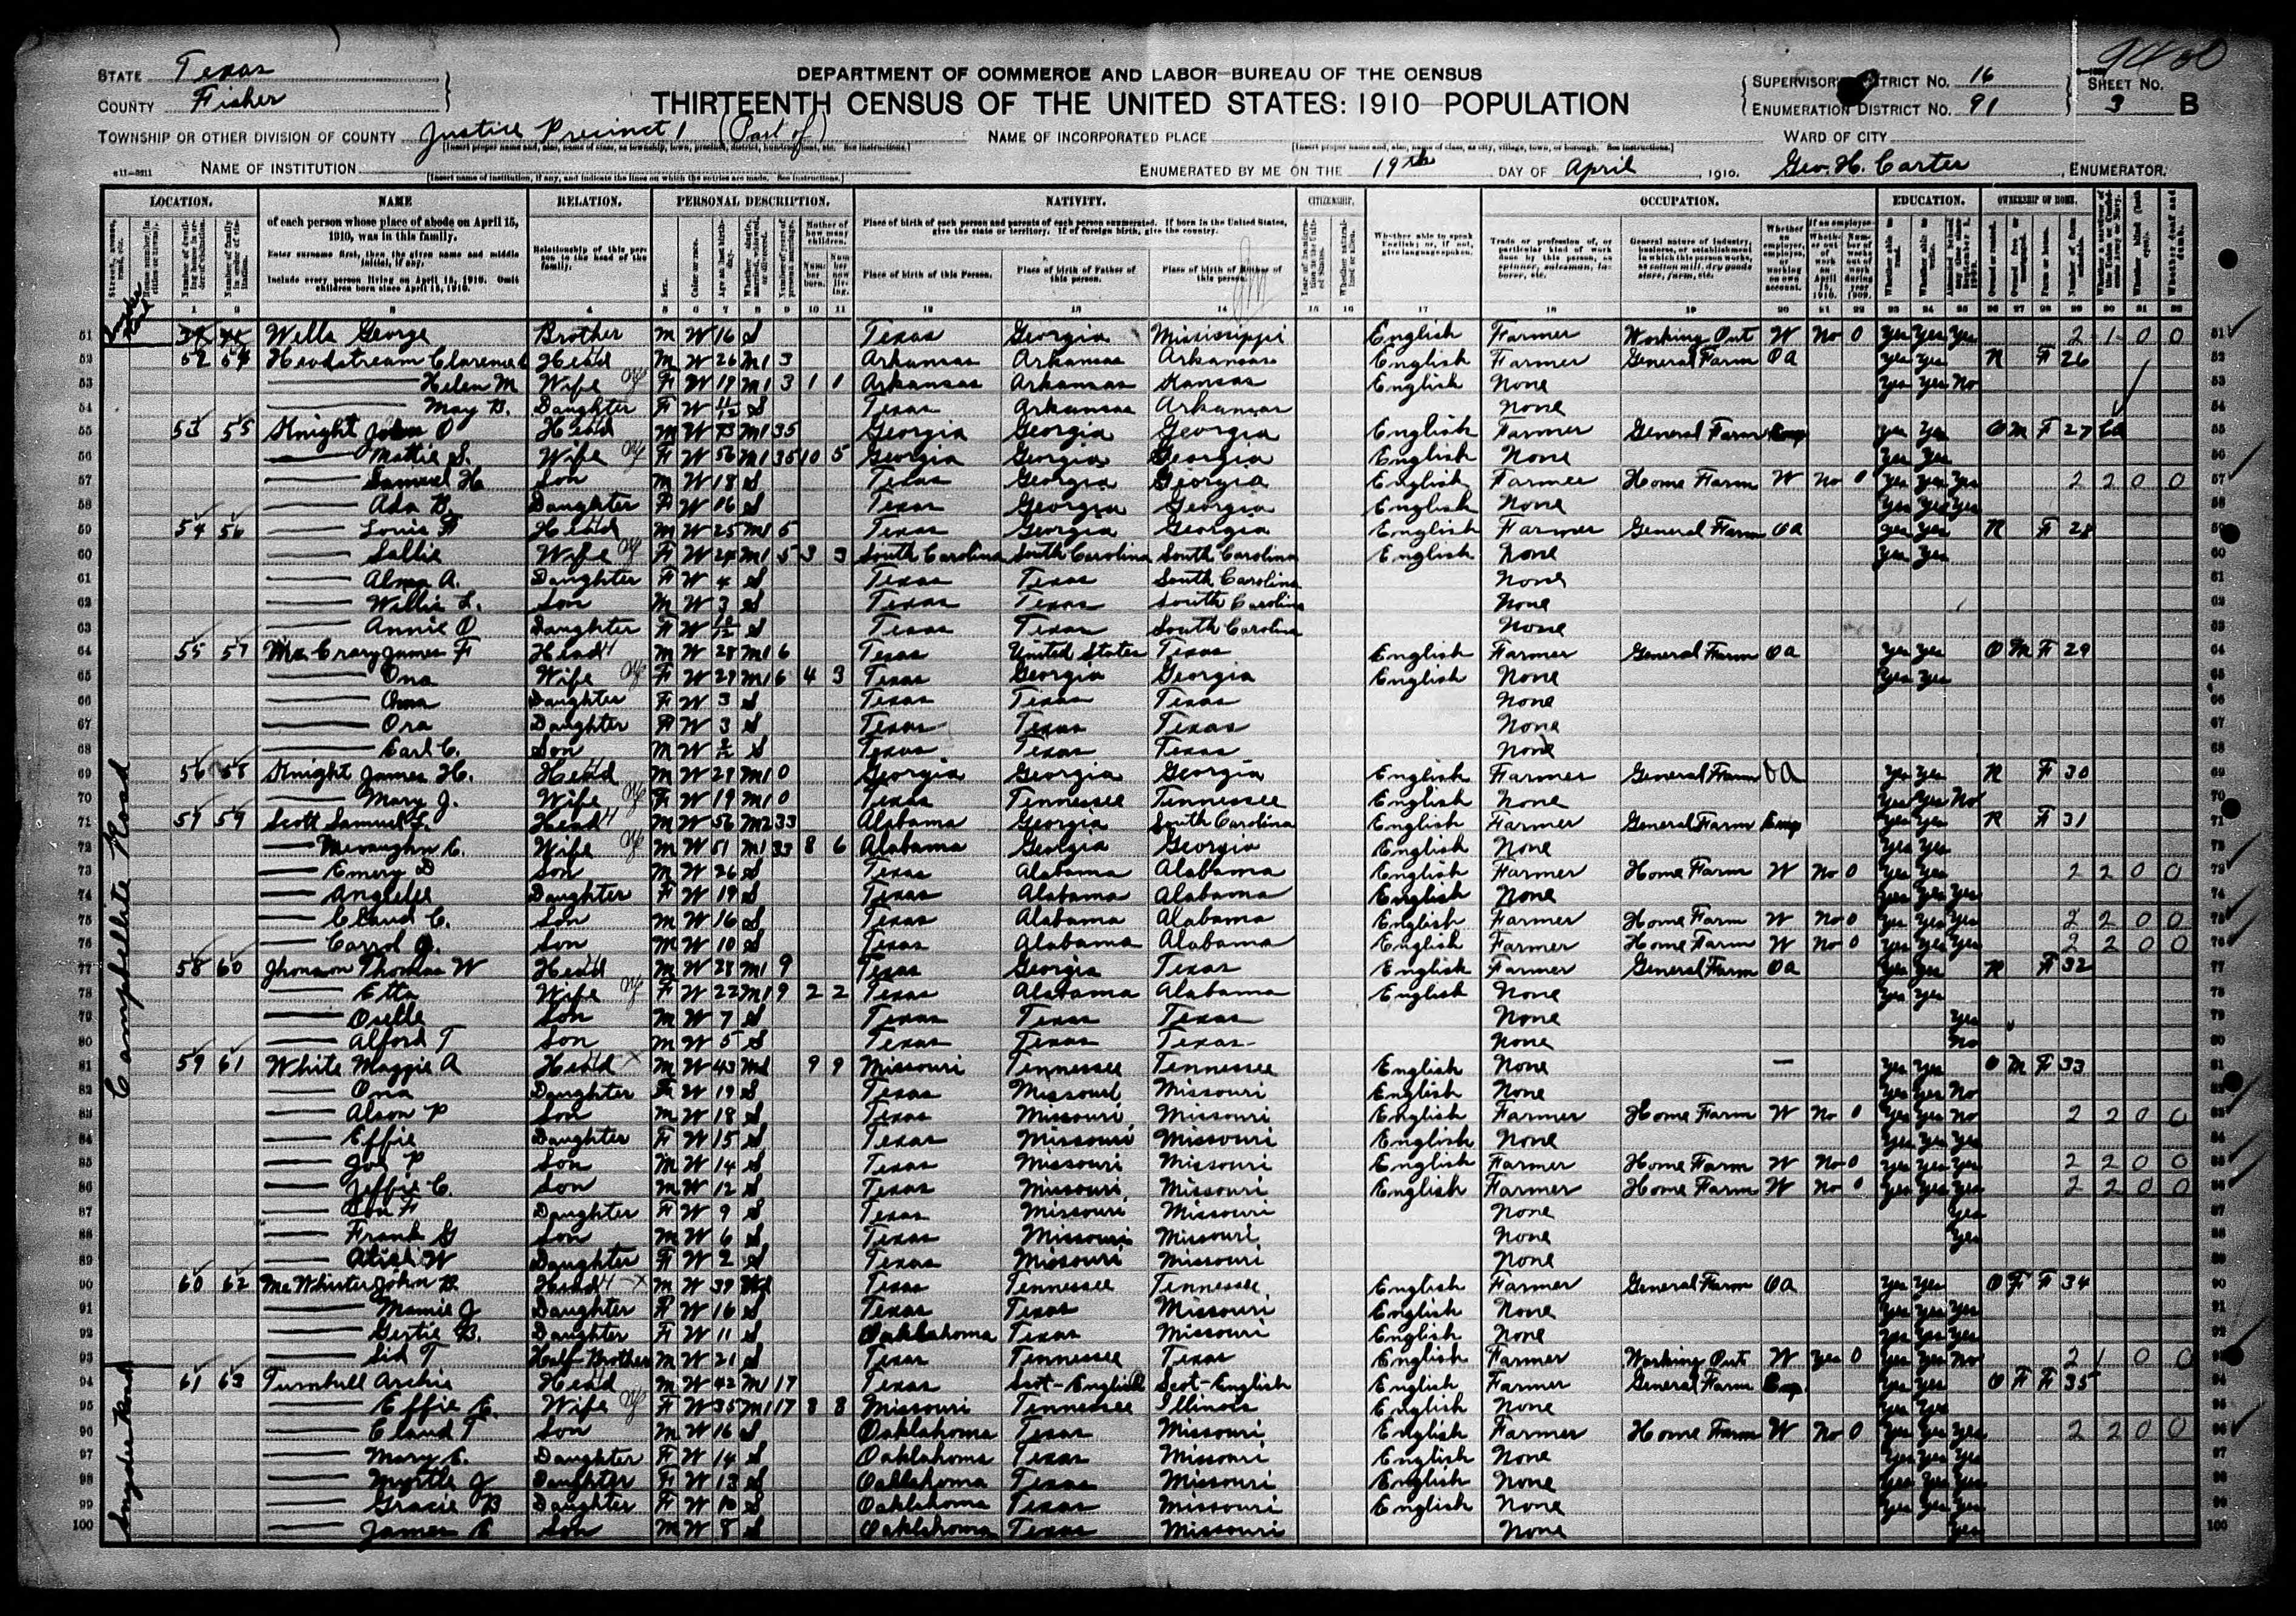 STATE Texas
COUNTY Fisher
DEPARTMENT OF COMMERCE AND LABOR—BUREAU OF THE CENSUS
THIRTEENTH CENSUS OF THE UNITED STATES: 1910—POPULATION
SUPERVISOR'S DISTRICT No. 16
ENUMERATION DISTRICT No. 91
SHEET No. 3 B
TOWNSHIP OR OTHER DIVISION OF COUNTY Justice Precinct 1 (Part of)
NAME OF INCORPORATED PLACE
WARD OF CITY
NAME OF INSTITUTION
ENUMERATED BY ME ON THE 19th DAY OF April, 1910. Geo. H. Carter, ENUMERATOR.
LOCATION. NAME RELATION. PERSONAL DESCRIPTION. NATIVITY. CITIZENSHIP. OCCUPATION. EDUCATION. OWNERSHIP OF HOME.
of each person whose place of abode on April 15, 1910, was in this family.
Enter surname first, then the given name and middle initial, if any.
Include every person living on April 15, 1910. Omit children born since April 15, 1910.
Relationship of this person to the head of the family.
Place of birth of each person and parents of each person enumerated. If born in the United States, give the state or territory. If of foreign birth, give the country.
Place of birth of this Person. Place of birth of Father of this person. Place of birth of Mother of this person.
Campbellite Road
Snyder Road
51 Wells George Brother M W 16 S Texas Georgia Mississippi English Farmer Working Out W No 0 Yes Yes Yes 2 1 0 0
52 52 54 Headstream Clarence Head M W 26 M1 3 Arkansas Arkansas Arkansas English Farmer General Farm OA Yes Yes R F 26
53 Helen M Wife F W 19 M1 3 1 1 Arkansas Arkansas Kansas English None Yes Yes No
54 May B. Daughter F W 11/12 S Texas Arkansas Arkansas None
55 53 55 Knight John O Head M W 73 M1 35 Georgia Georgia Georgia English Farmer General Farm Emp Yes Yes O M F 27 CA
56 Mattie S. Wife F W 56 M1 35 10 5 Georgia Georgia Georgia English None Yes Yes
57 Samuel H Son M W 18 S Texas Georgia Georgia English Farmer Home Farm W No 0 Yes Yes Yes 2 2 0 0
58 Ada B. Daughter F W 16 S Texas Georgia Georgia English None Yes Yes Yes
59 54 56 Louis F Head M W 25 M1 5 Texas Georgia Georgia English Farmer General Farm OA Yes Yes R F 28
60 Sallie Wife F W 24 M1 5 3 3 South Carolina South Carolina South Carolina English None Yes Yes
61 Alma A. Daughter F W 4 S Texas Texas South Carolina None
62 Willie L. Son M W 3 S Texas Texas South Carolina None
63 Annie O Daughter F W S Texas Texas South Carolina None
64 55 57 McCrary James F Head M W 28 M1 6 Texas United States Texas English Farmer General Farm OA Yes Yes O M F 29
65 Ona Wife F W 29 M1 6 4 3 Texas Georgia Georgia English None Yes Yes
66 Oma Daughter F W 3 S Texas Texas Texas None
67 Ora Daughter F W 3 S Texas Texas Texas None
68 Earl C. Son M W S Texas Texas Texas None
69 56 58 Knight James H. Head M W 29 M1 0 Georgia Georgia Georgia English Farmer General Farm OA Yes Yes R F 30
70 Mary J. Wife F W 19 M1 0 Texas Tennessee Tennessee English None Yes Yes No
71 57 59 Scott Samuel L. Head M W 56 M2 33 Alabama Georgia South Carolina English Farmer General Farm Emp Yes Yes R F 31
72 Mevaughn C. Wife M W 51 M1 33 8 6 Alabama Georgia Georgia English None Yes Yes
73 Emery D Son M W 26 S Texas Alabama Alabama English Farmer Home Farm W No 0 Yes Yes 2 2 0 0
74 Anglelee Daughter F W 19 S Texas Alabama Alabama English None Yes Yes Yes
75 Claud C. Son M W 16 S Texas Alabama Alabama English Farmer Home Farm W No 0 Yes Yes Yes 2 2 0 0
76 Carrol O. Son M W 10 S Texas Alabama Alabama English Farmer Home Farm W No 0 Yes Yes Yes 2 2 0 0
77 58 60 Jhonson Thomas W Head M W 28 M1 9 Texas Georgia Texas English Farmer General Farm OA Yes Yes R F 32
78 Etta Wife F W 22 M1 9 2 2 Texas Alabama Alabama English None Yes Yes
79 Oselle Son M W 7 S Texas Texas Texas None Yes
80 Alford T Son M W 5 S Texas Texas Texas None No
81 59 61 White Maggie A Head M W 43 Wd 9 9 Missouri Tennessee Tennessee English None Yes Yes O M F 33
82 Ona Daughter F W 19 S Texas Missouri Missouri English None Yes Yes No
83 Alson P Son M W 18 S Texas Missouri Missouri English Farmer Home Farm W No 0 Yes Yes No 2 2 0 0
84 Effie Daughter F W 15 S Texas Missouri Missouri English None Yes Yes Yes
85 Joe P Son M W 14 S Texas Missouri Missouri English Farmer Home Farm W No 0 Yes Yes Yes 2 2 0 0
86 Jeffie C. Son M W 12 S Texas Missouri Missouri English Farmer Home Farm W No 0 Yes Yes Yes 2 2 0 0
87 F Daughter F W 9 S Texas Missouri Missouri None Yes
88 Frank G Son M W 6 S Texas Missouri Missouri None Yes
89 Alice W Daughter F W 2 S Texas Missouri Missouri None
90 60 62 McWhirter John B. Head M W 39 Wd Texas Tennessee Tennessee English Farmer General Farm OA Yes Yes O F F 34
91 Mamie J Daughter F W 16 S Texas Texas Missouri English None Yes Yes Yes
92 Gertie B. Daughter F W 11 S Oaklahoma Texas Missouri English None Yes Yes Yes
93 Sid T Half-Brother M W 21 S Texas Tennessee Texas English Farmer Working Out W Yes 0 Yes Yes No 2 1 0 0
94 61 63 Turnbull Archie Head M W 42 M1 17 Texas Scot-English Scot-English English Farmer General Farm Emp. Yes Yes O F F 35
95 Effie E. Wife F W 35 M1 17 8 8 Missouri Tennessee Illinois English None Yes Yes
96 Claud T Son M W 16 S Oaklahoma Texas Missouri English Farmer Home Farm W No 0 Yes Yes Yes 2 2 0 0
97 Mary E. Daughter F W 14 S Oaklahoma Texas Missouri English None Yes Yes Yes
98 Myrtle J Daughter F W 13 S Oaklahoma Texas Missouri English None Yes Yes Yes
99 Gracie B Daughter F W 10 S Oaklahoma Texas Missouri English None Yes Yes Yes
100 James E Son M W 8 S Oaklahoma Texas Missouri None Yes